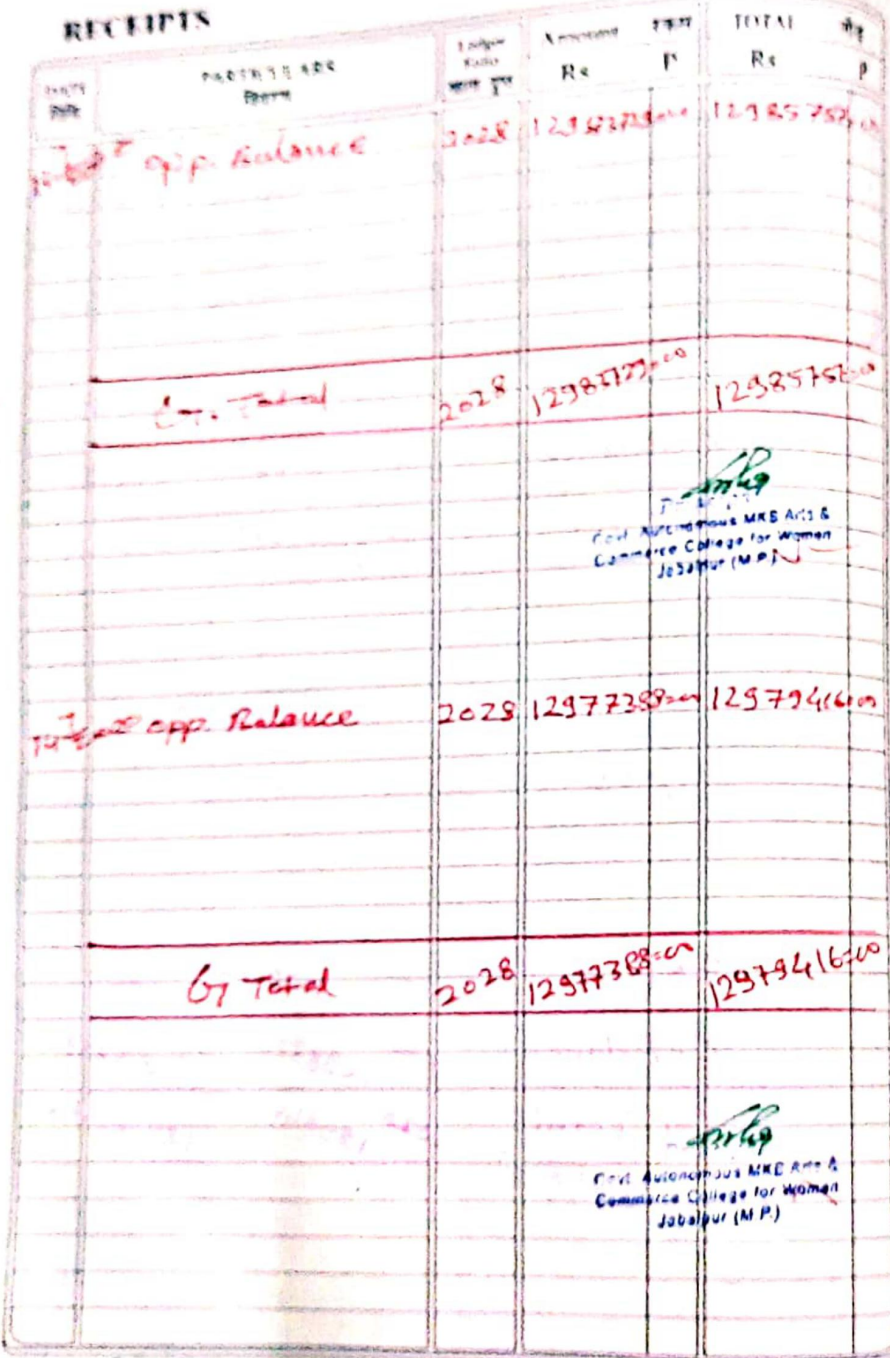 RECEIPTS
DATE PARTICULARS Ledger Folio Amount रकम TOTAL
तिथि विवरण Rs P Rs P
opp. Balance 2028 12985757=00
G. Total 2028 12983729=00 12985757=00
Govt Autonomous MKB Arts &
Commerce College for Women
Jabalpur (M.P.)
opp. Balance 2028 12977388=00 12979416=00
G Total 2028 12977388=00 12979416=00
Govt Autonomous MKB Arts &
Commerce College for Women
Jabalpur (M.P.)